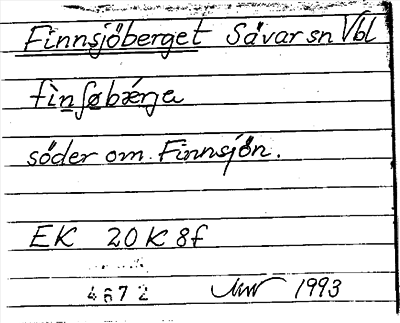 Finnsjöberget Sävar sn Vbl
fìnʃøbæ̀rje
söder om Finnsjön.
EK 20 K 8f
4672 1993